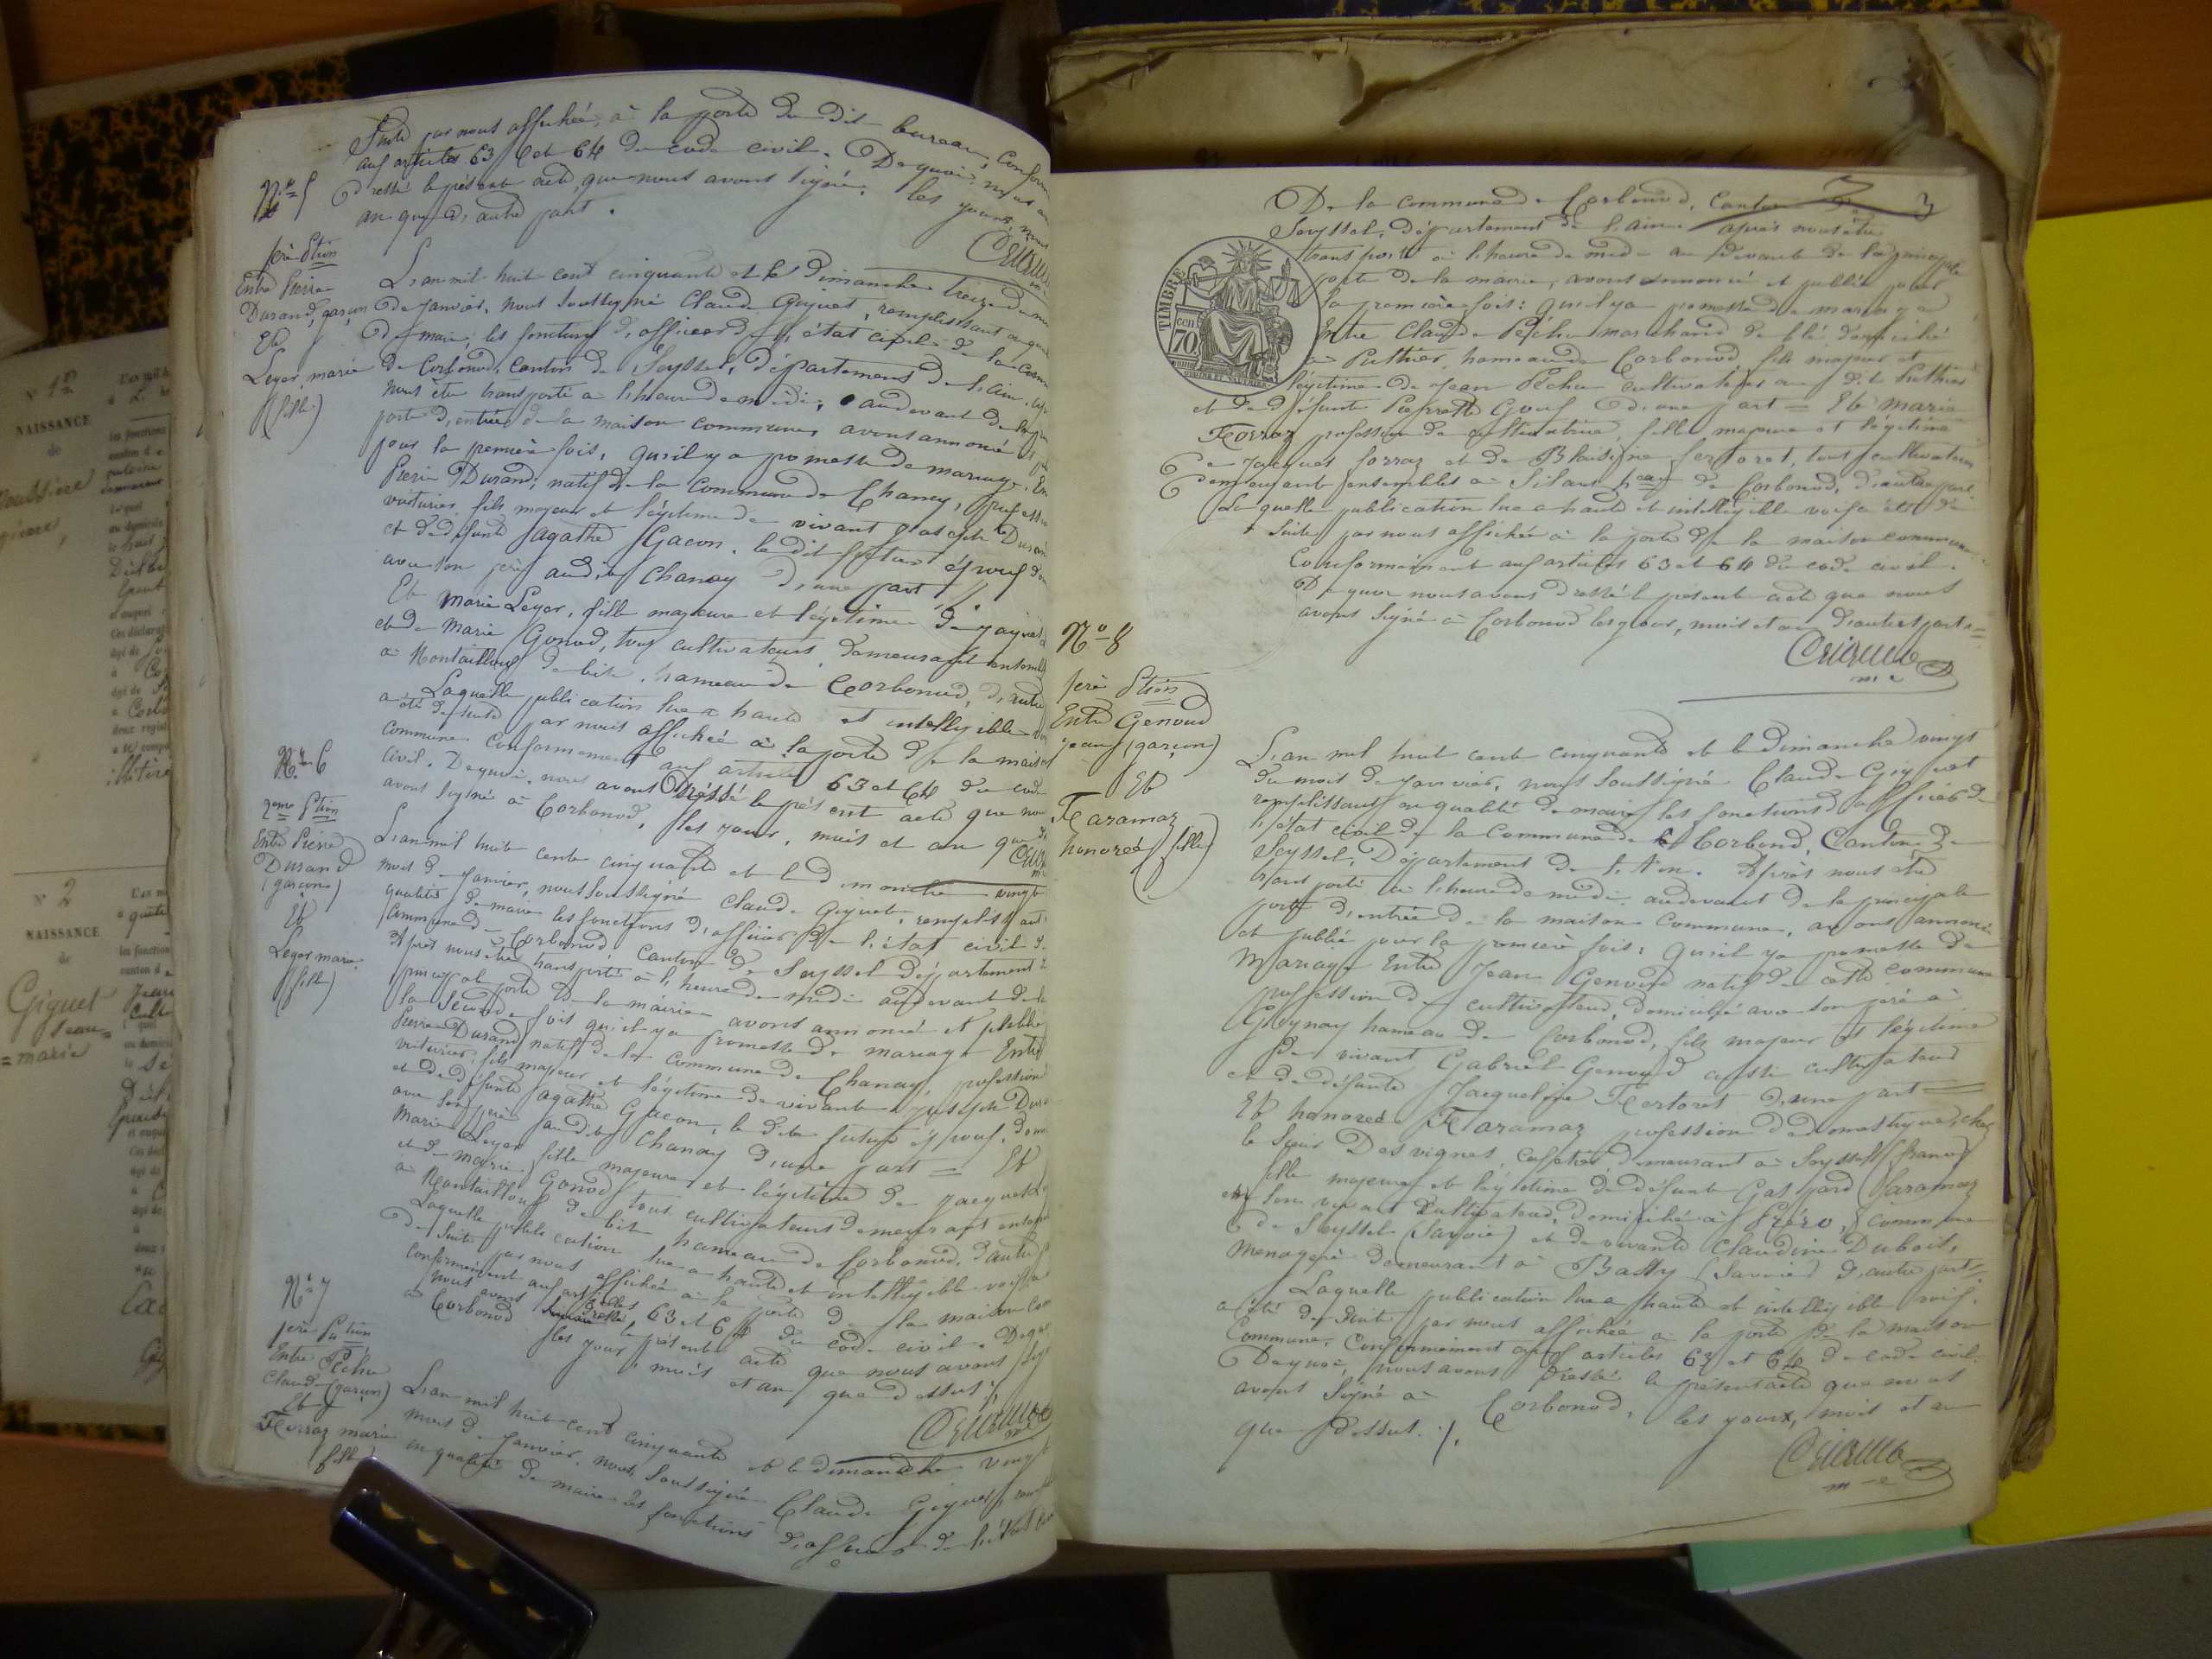 Suite par nous affichée, à la porte du dit bureau, conform
aux articles 63 et 64 du code civil. De quoi nous a
dressé le présent acte, que nous avons signé, les jours, mois
an que d'autre part.
N.º 5
1ère Ption
Entre Pierre
Durand, garçon
Et
Leger, marie
(fille)
L'an mil huit cent cinquante et le dimanche treize du m
de Janvier, nous soussigné Claude Giguet, remplissant en qua
de maire, les fonctions d'officier de l'état civil de la Comm
de Corbonod, canton de Seyssel, département de l'ain,
nous être transporté à l'heure de midi, audevant de la p
porte d'entrée de la maison commune, avons annoncé et
pour la première fois, qu'il y a promesse de mariage. En
Pierre Durand, natif de la commune de Chanay, professi
voiturier, fils majeur et légitime de vivant Joseph Duran
et de défunte agathe Gacon, le dit futur époux do
avec son père audit Chanay d'une part //.
Et Marie Leger, fille majeure et légitime de Jacques
et de Marie Gonod, tous cultivateurs, demeurant ensemb
à Montailloux de bise, hameau de Corbonod, d'autre
Laquelle publication lue a haute et intelligible v
a été de suite par nous affichée à la porte de la maison
commune conformement aux articles 63 et 64 du code
civil. De quoi, nous avons dréssé le présent acte que nou
avons signé à Corbonod, les jour, mois et an que d
N.º 6
2eme Ption
Entre Pierre
Durand
(garçon)
Et
Leger marie
(fille)
L'an mil huit cent cinquante et le dimanche vingt
mois de Janvier, nous soussigné Claude Giguet, remplissant
qualité de maire les fonctions d'officier de l'état civil d
Commune de Corbonod Canton de Seyssel département d
Après nous être transporté à l'heure de midi audevant de l
principale porte de la mairie avons annoncé et publié
la Seconde fois qu'il y a promesse de mariage Entre
Pierre Durand natif de la commune de Chanay, profession
voiturier, fils majeur et légitime de vivant Joseph Dura
et de défunte agathe Gacon, le dit futur époux, dom
avec son père audit Chanay d'une part = Et
Marie Leger fille majeure et légitime de Jacques L
et de marie Gonod tous cultivateurs demeurant ensem
à Montailloux de bise hameau de Corbonod, d'autre
Laquelle publication lue a haute et intelligible voix a
de suite par nous affichée à la porte de la maison com
conformement aux articles 63 et 64 du code civil. De quoi
nous avons dressé le présent acte que nous avons signé
à Corbonod les jour, mois et an que dessus ./.
N.º 7
1ère Pution
Entre Pécha
Claude (garçon)
Et
Ferraz marie
fille
L'an mil huit cent cinquante et le dimanche vingt
mois de Janvier, nous, soussigné Claude Giguet, rem
en qualité de maire les fonctions d'officier de l'état civi
3
De la commune de Corbonod, Canton de
Seyssel, département de l'ain. après nous être
transporté à l'heure de midi au devant de la principale
porte de la mairie, avons annoncé et publié pour
la première fois: qu'il y a promesse de mariage
Entre Claude Pécha marchand de blé, domicilié
à Puthier, hameau de Corbonod, fils majeur et
légitime de Jean Pécha cultivateur au dit Puthier
et de défunte Pierrette Goux d'une part = Et marie
Ferraz profession de cultivatrice, fille majeure et légitime
de Jacques ferraz et de Blaisine fertoret, tous cultivateurs
demeurant ensembles à Silans heau de Corbonod, d'autre part
La quelle publication lue a haute et intelligible voix a été de
suite par nous affichée à la porte de la maison commune
Conformément aux articles 63 et 64 du code civil.
De quoi nous avons dressé le présent acte que nous
avons signé à Corbonod les jour, mois et an d'autre part =
TIMBRE
70
cen
N.º 8
1ère Ption
Entre Genoud
jean (garçon)
Et
Faramaz
honorée (fille)
L'an mil huit cent cinquante et le dimanche vingt
du mois de Janvier, nous soussigné Claude Giguet
remplissant en qualité de maire les fonctions d'officier de
l'état civil de la Commune de Corbond, Canton de
Seyssel, Département de l'Ain. Après nous être
transporté à l'heure de midi, audevant de la principale
porte d'entrée de la maison Commune, avons annoncé
et publié pour la première fois: qu'il y a promesse de
Mariage Entre Jean Genoud natif de cette commune
profession de cultivateur, domicilié avec son père à
Gignay hameau de Corbonod, fils majeur et légitime
de vivant Gabriel Genoud aussi cultivateur
et de défunte Jacqueline Fertoret d'une part =
Et honorée Faramaz profession de domestique, chez
le Sieur Desvignes, cafetier demeurant à Seyssel (france)
fille majeure et légitime de défunt Gaspard Faramaz
en son vivant Cultivateur, domicilié à Préro, commune
de Seyssel (Savoie) et de vivante Claudine Dubois,
menagère demeurant à Bassy (Savoie) d'autre part =
Laquelle publication lue a haute et intelligible voix,
a été de suite par nous affichée à la porte de la maison
Commune, Conformement aux articles 63 et 64 du code civil.
De quoi, nous avons dressé le présent acte que nous
avons signé à Corbonod, les jours, mois et an
que dessus ./.
N° 1er
NAISSANCE
de
N° 2
NAISSANCE
de
Giguet
Jean=
=marie